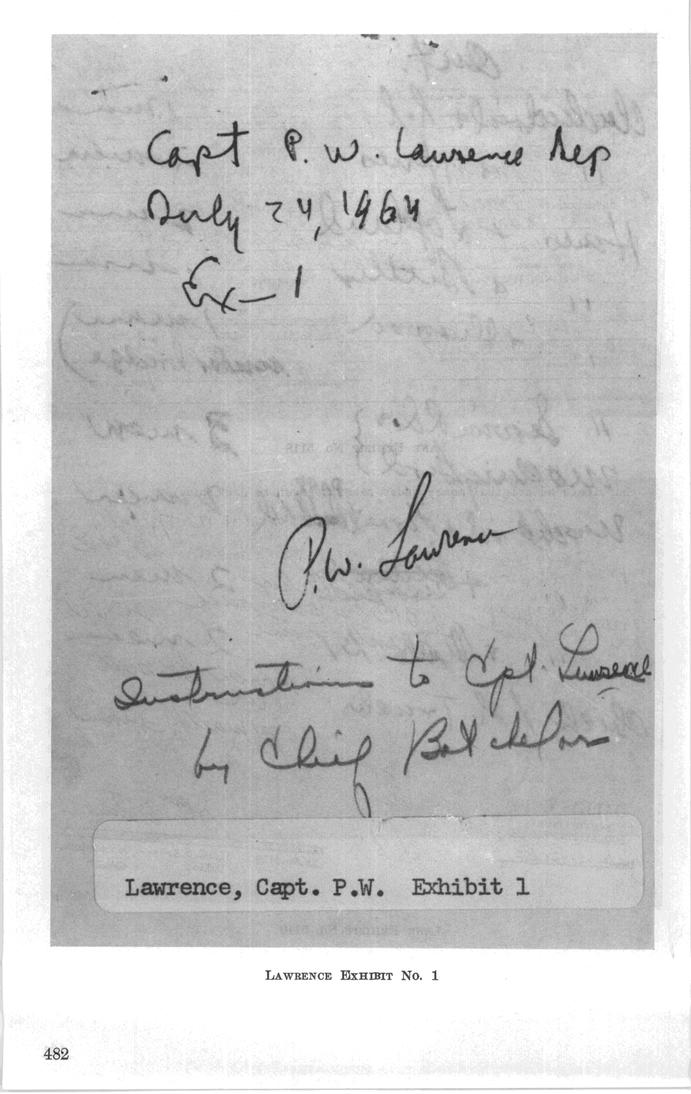 Capt P. W Lawrence Dep
July 24, 1964
Ex-1
P.W. Lawrence
Instructions to Cpt. Lawrence
by Chief Batchelor
Lawrence, Capt. P.W. Exhibit 1
LAWRENCE EXHIBIT No. 1
482